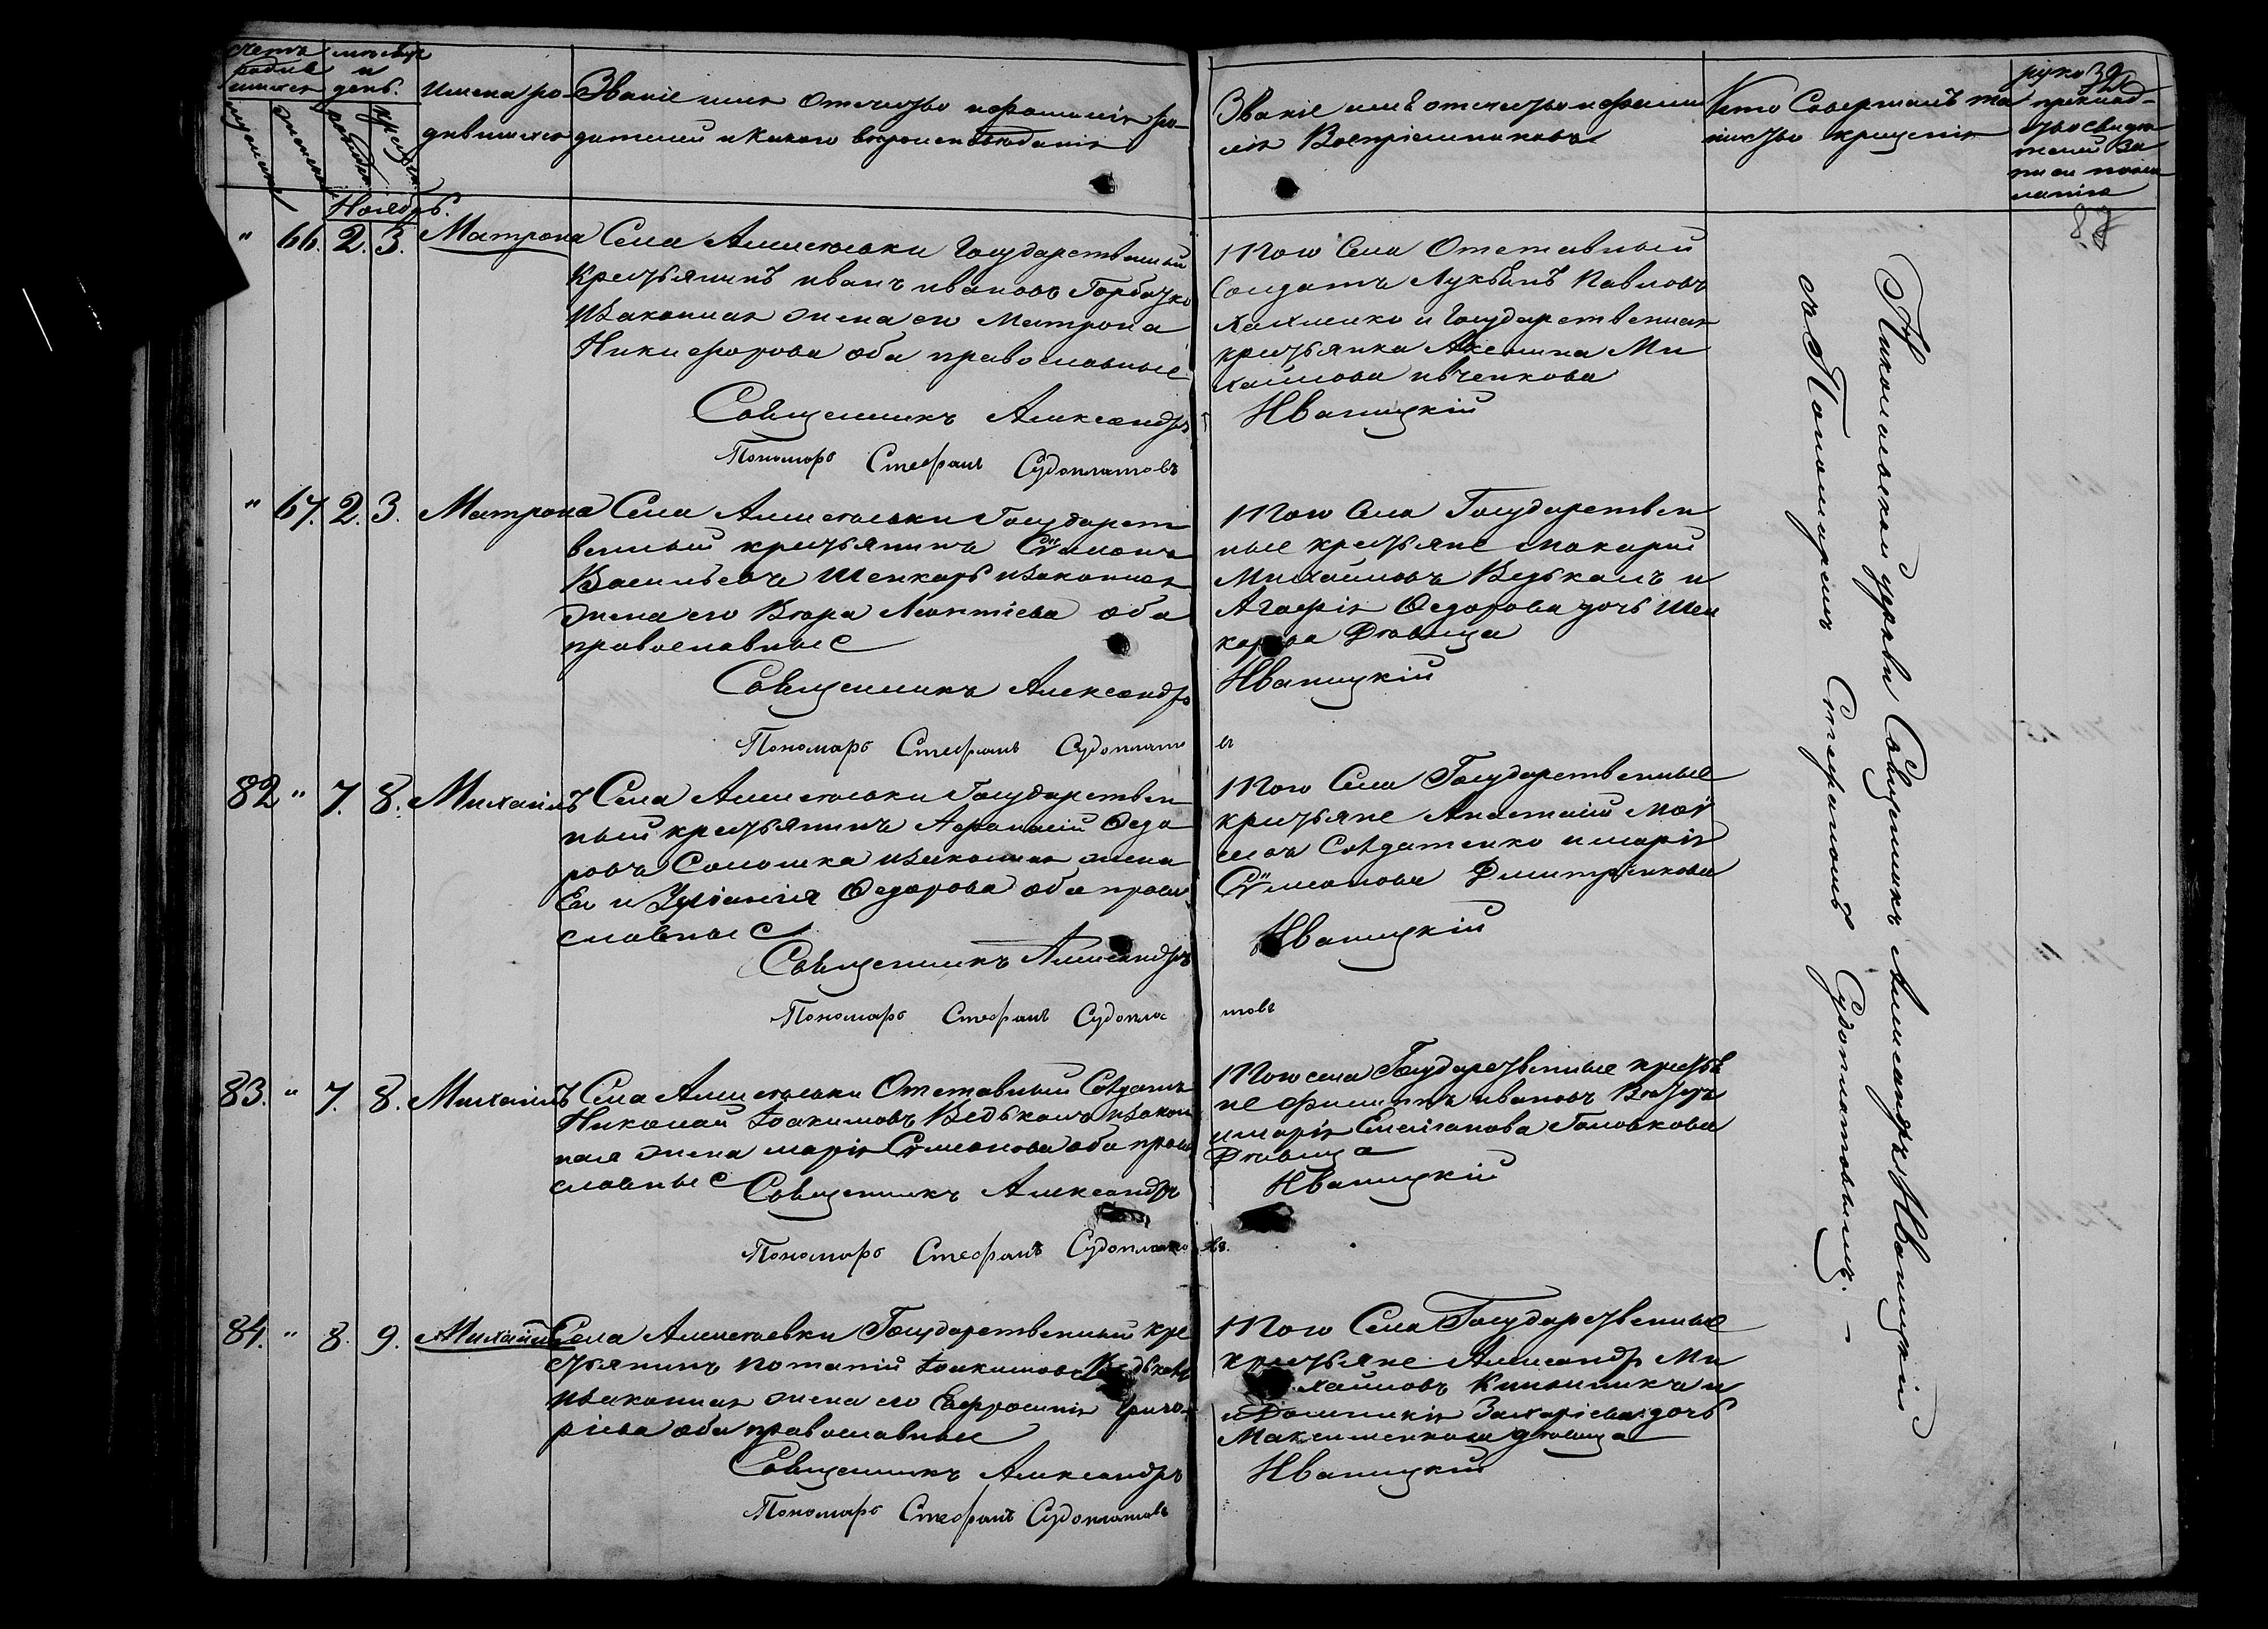 счетъ родив шихся
мужеска
женска
мѣсяцъ и день.
рожден
крещен.
Имена ро дившихся
Званіе имя Отечество и фамилія ро
дителей и какого вѣроисповѣданія
Званіе имя отечество и фами
лія Воспріемниковъ
Кто Совершалъ та
инство крещенія
руко
приклад
ство свидѣ
телей За
писи по жела
нію
Ноябрь.
" 66. 2. 3. Матрона
Села Алексѣевки Государственный
Крестьянинъ иванъ ивановъ Горбачко
изаконная жена его Матрона
Никифорова оба православные
Священникъ Александръ
Пономарь Стефанъ Судоплатовъ
того Села Отставный
Солдатъ Лукьянъ Павловъ
и Государственная
крестьянка Акелина Ми
хайлова ивченкова
Иваницкій
" 67. 2. 3. Матрона
Села Алексѣевки Государст
венный крестьянинъ Сѵмеонъ
Васильевъ Шенкарь изаконная
жена его Вѣра Леонтіева оба
православные
Священникъ Александръ
Пономарь Стефанъ Судоплато
въ
того Села Государствен
ные крестьяне Макарій
Михайловъ Ведькалъ и
Агафія Федорова дочь Шен
карева Дѣвица
Иваницкій
82 " 7. 8. Михаилъ
Села Алексѣевки Государствен
ный крестьянинъ Афанасій Федо
ровъ Соломка изаконная жена
Его Федорова оба право
славные
Священникъ Александръ
Пономарь Стефанъ Судопла
товъ
того Села Государственные
крестьяне Анастасій Мой
сеевъ Солдатенко и марія
Сѵмеонова Дмитренкова
Иваницкій
83. " 7. 8. Михаилъ
Села Алексѣевки Отставный Солдатъ
Николай Іоакимовъ Ведькалъ изакон
ная жена марія Сѵмеонова оба право
славные Священникъ Александръ
Пономарь Стефанъ Судоплато
въ.
того села Государственные крестья
не филиппъ ивановъ
и марія Емеліанова Головкова
Дѣвица
Иваницкій
84. " 8. 9. Михаилъ
Села Алексѣевки Государственный кре
стьянинъ Потапій Іоакимовъ Ведькалъ
изаконная жена его Евфросинія Григо
ріева оба православные
Священникъ Александръ
Пономарь Стефанъ Судоплатовъ
того Села Государственные
крестьяне Александръ Ми
хайловъ и
Домникія Захаріева дочь
Максименкова дѣвица
Иваницкій
Николаевской церкви Священникъ Александръ Иваницкій
съ Пономаремъ Стефаномъ Судоплатовымъ.